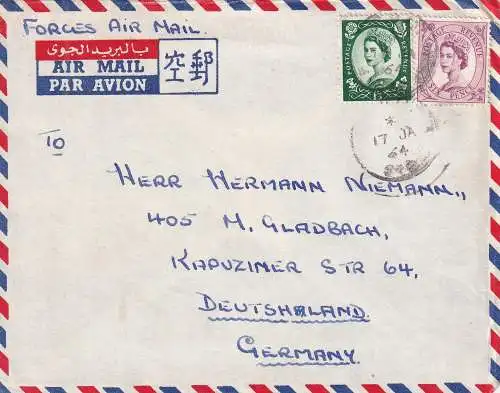 FORCES AIR MAIL.
بالبريد الجوى
AIR MAIL
PAR AVION
空郵
TO
POSTAGE REVENUE
1/3
17 JA
64
HERR HERMANN NIEMANN,,
405 M. GLADBACH,
KAPUZINER STR 64,
DEUTSHALAND
GERMANY